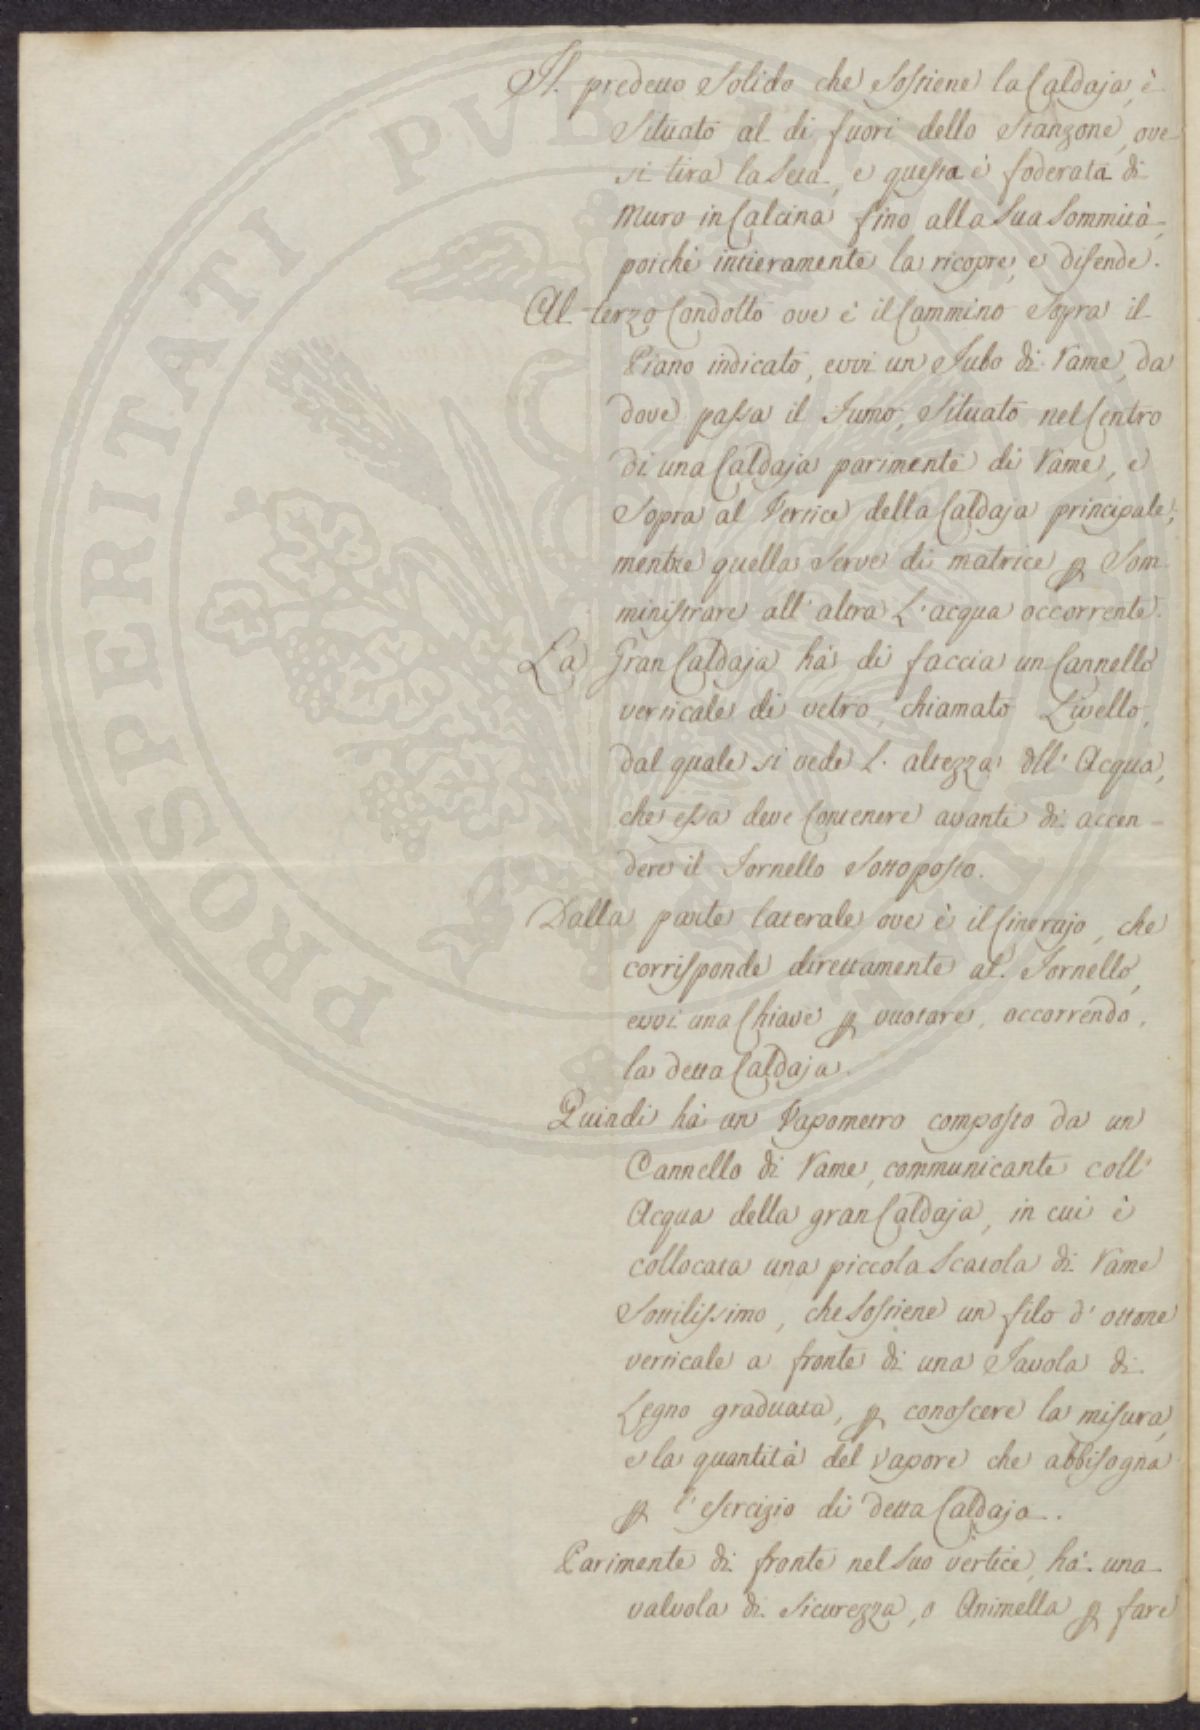 Il predetto Solido che Sostiene la Caldaja, è
Situato al di fuori dello Stanzone, ove
si tira la Seta, e questa è foderata di
Muro in Calcina fino alla Sua Sommità,
poichè intieramente la ricopre, e difende.
Al terzo Condotto ove è il Cammino Sopra il
Piano indicato, evvi un Tubo di Rame, da
dove passa il Fumo, Situato nel Centro
di una Caldaja parimente di Rame, e
Sopra al Vertice della Caldaja principale,
mentre quella Serve di matrice p Som-
ministrare all' altra L'acqua occorrente.
La Gran Caldaja hà di faccia un Cannello
verticale di vetro, chiamato Livello,
dal quale si vede L'altezza dll' Acqua,
che essa deve Contenere avanti di accen-
dere il Fornello Sottoposto.
Dalla parte laterale ove è il Cinerajo, che
corrisponde direttamente al Fornello,
evvi una Chiave p vuotare, occorrendo,
la detta Caldaja.
Quindi hà un Vapometro composto da un
Cannello di Rame, communicante coll'
Acqua della gran Caldaja, in cui è
collocata una piccola Scatola di Rame
Sottilissimo, che Sostiene un filo d'ottone
verticale a fronte di una Tavola di
Legno graduata, p conoscere la misura,
e la quantità del vapore che abbisogna
p l'esercizio di detta Caldaja.
Parimente di fronte nel Suo vertice, hà una
valvola di Sicurezza, o Animella p fare
PROSPERITATI PVBLICAE